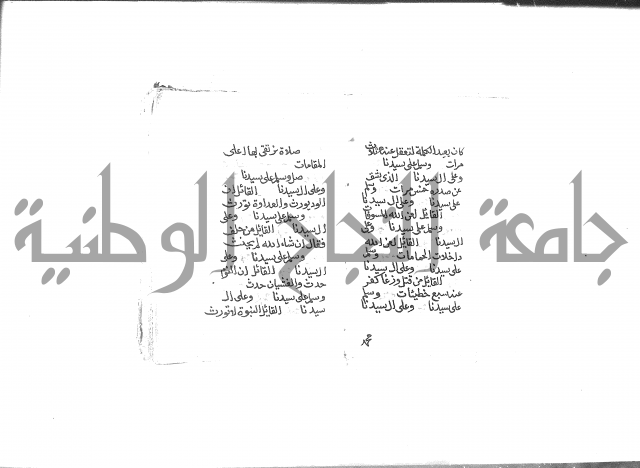 كان يعيد الكلمة لتعقل عنه ثلاث
مرات وسلم على سيدنا
وعلى ال سيدنا الذي شق
عن صدره خمس مرات وسلم
على سيدنا وعلى ال سيدنا
القائل لعن الله المسوفات
وسلم على سيدنا وعلى
ال سيدنا القائل لعن الله
داخلات الحمامات وسلم
على سيدنا وعلى ال سيدنا
القائل من قتل وزغا كفر
عنه سبع خطيئات وسلم
على سيدنا وعلى ال سيدنا
صلاة نرتقي بها اعلى
المقامات
صل وسلم على سيدنا
وعلى ال سيدنا القائل ان
الود يورث والعداوة تورث
وسلم على سيدنا وعلى
ال سيدنا القائل من حلف
فقال ان شاء الله لم يحنث
وسلم على سيدنا وعلى
ال سيدنا القائل ان النوم
حدث والغشيان حدث
وسلم على سيدنا وعلى ال
سيدنا القائل النبوة لا تورث
جامعة النجاح الوطنية